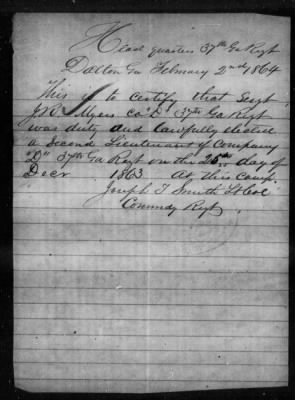 Head quarters 37th Ga Regt
Dalton Ga February 2nd 1864
This is to certify that Sergt
J.R. Myers Co "D" 37th Ga Regt
was duty and lawfully elected
a Second Lieutenant of Company
"D" 37th Ga Regt on the 25th day of
Decr 1863 At this camp.
Joseph T Smith Lt Col
Commdg Regt